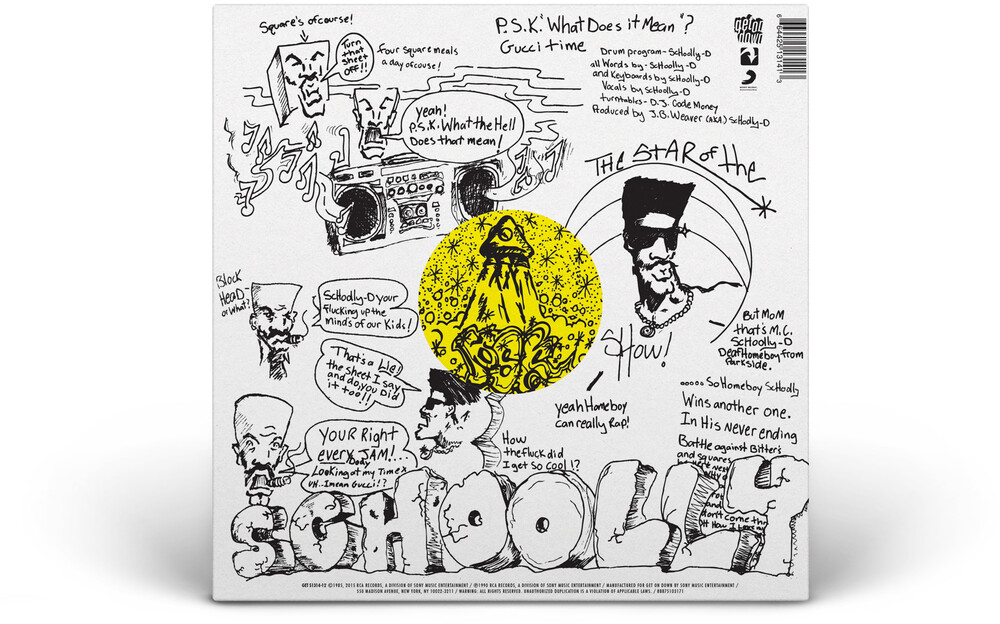 Square's ofcourse!
Turn
that
sheet
OFF!!
four square meals
a day ofcouse!
P.S.K. "What Does it Mean"?
Gucci time
Drum program - SchoOlly-D
all Words by - SchoOlly-D
and Keyboards by SchoOlly-D
Vocals by SchoOlly-D
turntables - D.J. Code Money
Produced by J.B. Weaver (AKA) SchoOlly-D
get on
down
6 64425 13141 3
Yeah!
P.S.K. What the Hell
Does that mean!
THE STAR of the
SHOW!
Block
HeaD -
or What?
ScHoolly-D your
flucking up the
minds of our Kids!
That's a Lie!
the sheet I say
and do, you Did
it too!!
But MoM
that's M.C.
ScHoolly-D
Deaf Homeboy from
Parkside.
yeah Homeboy
can really Rap!
How
the fluck did
I get so Cool!?
YOUR Right
every JAM!...
Body
Looking at my Timex
UH.. I mean Gucci!?
..... So Homeboy ScHoolly
Wins another one.
In His Never ending
Battle against Bitter's
and squares
SCHOOLLY
GET 51314-12 ©1985, 2015 RCA RECORDS, A DIVISION OF SONY MUSIC ENTERTAINMENT / ℗1990 RCA RECORDS, A DIVISION OF SONY MUSIC ENTERTAINMENT / MANUFACTURED FOR GET ON DOWN BY SONY MUSIC ENTERTAINMENT /
550 MADISON AVENUE, NEW YORK, NY 10022-3211 / WARNING: ALL RIGHTS RESERVED. UNAUTHORIZED DUPLICATION IS A VIOLATION OF APPLICABLE LAWS. / 88875105171